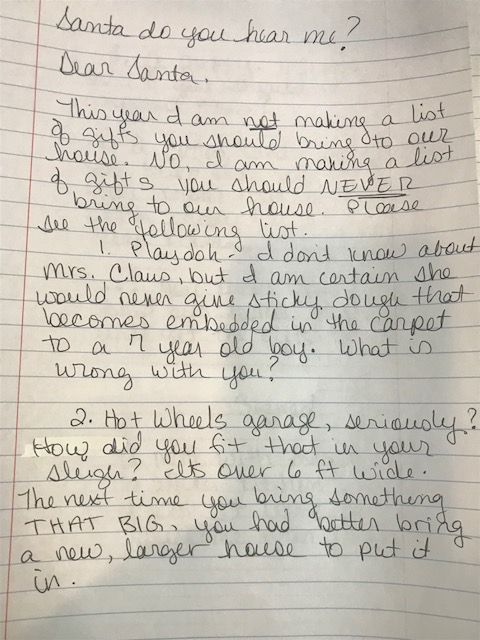 Santa do you hear me?
Dear Santa,
This year I am not making a list
of gifts you should bring to our
house. NO, I am making a list
of gifts you should NEVER
bring to our house. Please
see the following list.
1. Playdoh - I don't know about
Mrs. Claus, but I am certain she
would never give sticky dough that
becomes embedded in the carpet
to a 7 year old boy. What is
wrong with you?
2. Hot Wheels garage, seriously?
How did you fit that in your
sleigh? Its over 6 ft wide.
The next time you bring something
THAT BIG, you had better bring
a new, larger house to put it
in.